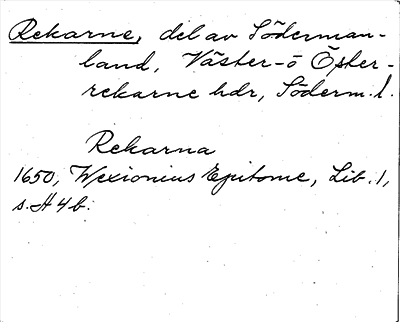 Rekarne, del av Söderman-
land, Väster- o Öster-
rekarne hdr, Söderm. l.
Rekarna
1650, Wexionius Epitome, Lib. 1,
s. H 4 b.